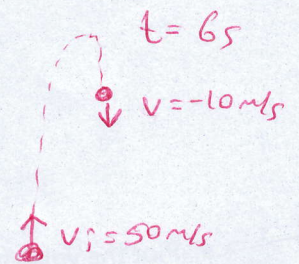 t = 6s
v = -10 m/s
vi = 50 m/s